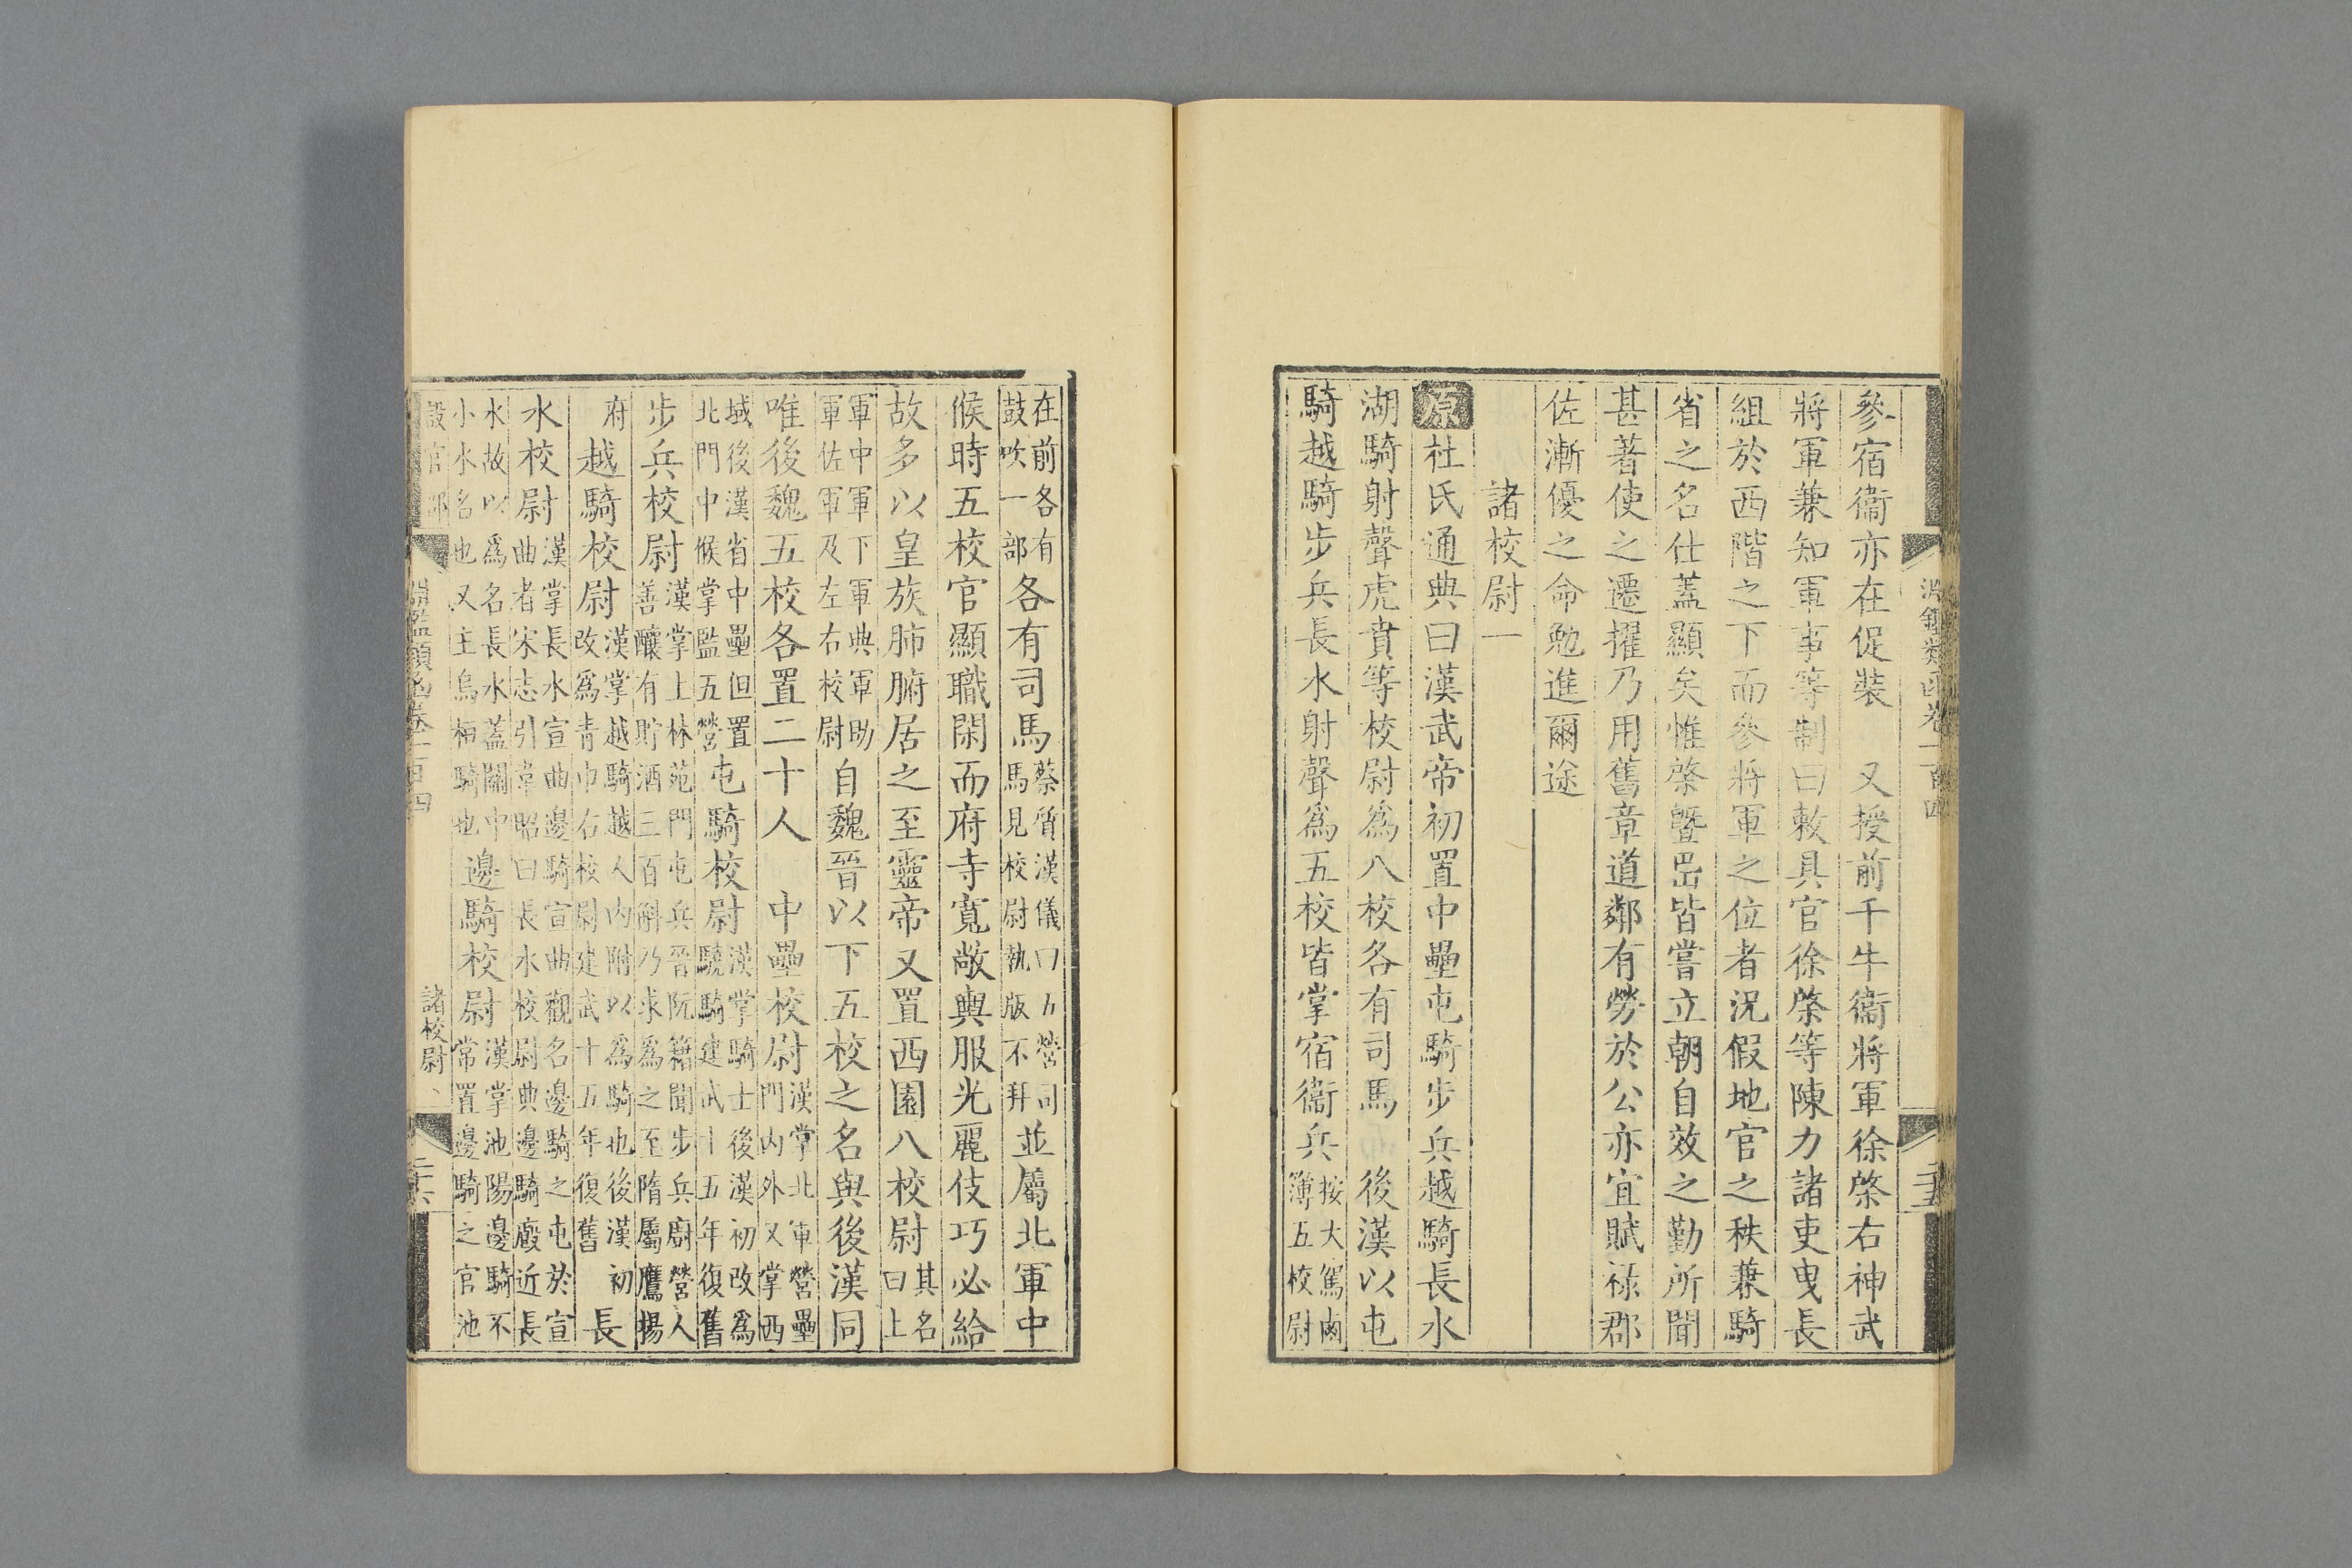 參宿衞亦在促裝　又授前千牛衞將軍徐棨右神武
將軍兼知軍事等制曰敕具官徐棨等陳力諸吏曳長
組於西階之下而參將軍之位者況假地官之秩兼騎
省之名仕蓋顯矣惟棨暨嵒皆嘗立朝自效之勤所聞
甚著使之遷擢乃用舊章道鄰有勞於公亦宜賦祿郡
佐漸優之命勉進爾途
諸校尉一
原杜氏通典曰漢武帝初置中壘屯騎步兵越騎長水
湖騎射聲虎賁等校尉爲八校各有司馬　後漢以屯
騎越騎步兵長水射聲爲五校皆掌宿衞兵按大駕鹵簿五校尉
淵鑑類函卷一百四
二十五
在前各有鼓吹一部各有司馬蔡質漢儀曰五營司馬見校尉執版不拜並屬北軍中
候時五校官顯職閑而府寺寬敞輿服光麗伎巧必給
故多以皇族肺腑居之至靈帝又置西園八校尉其名曰上
軍中軍下軍典軍助軍佐軍及左右校尉自魏晉以下五校之名與後漢同
唯後魏五校各置二十人　中壘校尉漢掌北軍營壘門內外又掌西
域後漢省中壘但置北門中候掌監五營屯騎校尉漢掌騎士後漢初改爲驍騎建武十五年復舊
步兵校尉漢掌上林苑門屯兵晉阮籍聞步兵廚營人善釀有貯酒三百斛乃求爲之至隋屬鷹揚
府越騎校尉漢掌越騎越人內附以爲騎也後漢初改爲青巾右校尉建武十五年復舊長
水校尉漢掌長水宣曲邊騎宣曲觀名邊騎之屯於宣曲者宋志引韋昭曰長水校尉典邊騎廄近長
水故以爲名長水蓋關中小水名也又主烏桓騎也邊騎校尉漢掌池陽邊騎不常置邊騎之官池
淵鑑類函卷一百四
設官部
諸校尉一
二十六